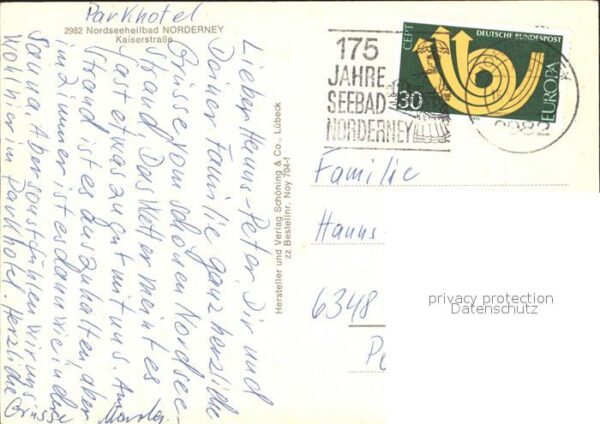 Parkhotel
2982 Nordseeheilbad NORDERNEY
Kaiserstraße
Lieber Hanns-Peter, Dir und
Deiner Familie ganz herzliche
Grüsse vom schönen Nordsee-
strand. Das Wetter meint es
fast etwas zu gut mit uns. Am
Strand ist es auszuhalten, aber
im Zimmer ist es dann wie in der
Sauna. Aber sonst fühlen wir uns
wohl hier im Parkhotel. Herzliche
Grüsse
Hersteller und Verlag Schöning & Co., Lübeck
zz Bestellnr. Noy 704-f
175
JAHRE
SEEBAD
NORDERNEY
CEPT
DEUTSCHE BUNDESPOST
30
EUROPA
2982
Familie
Hanns-
6348
privacy protection
Datenschutz